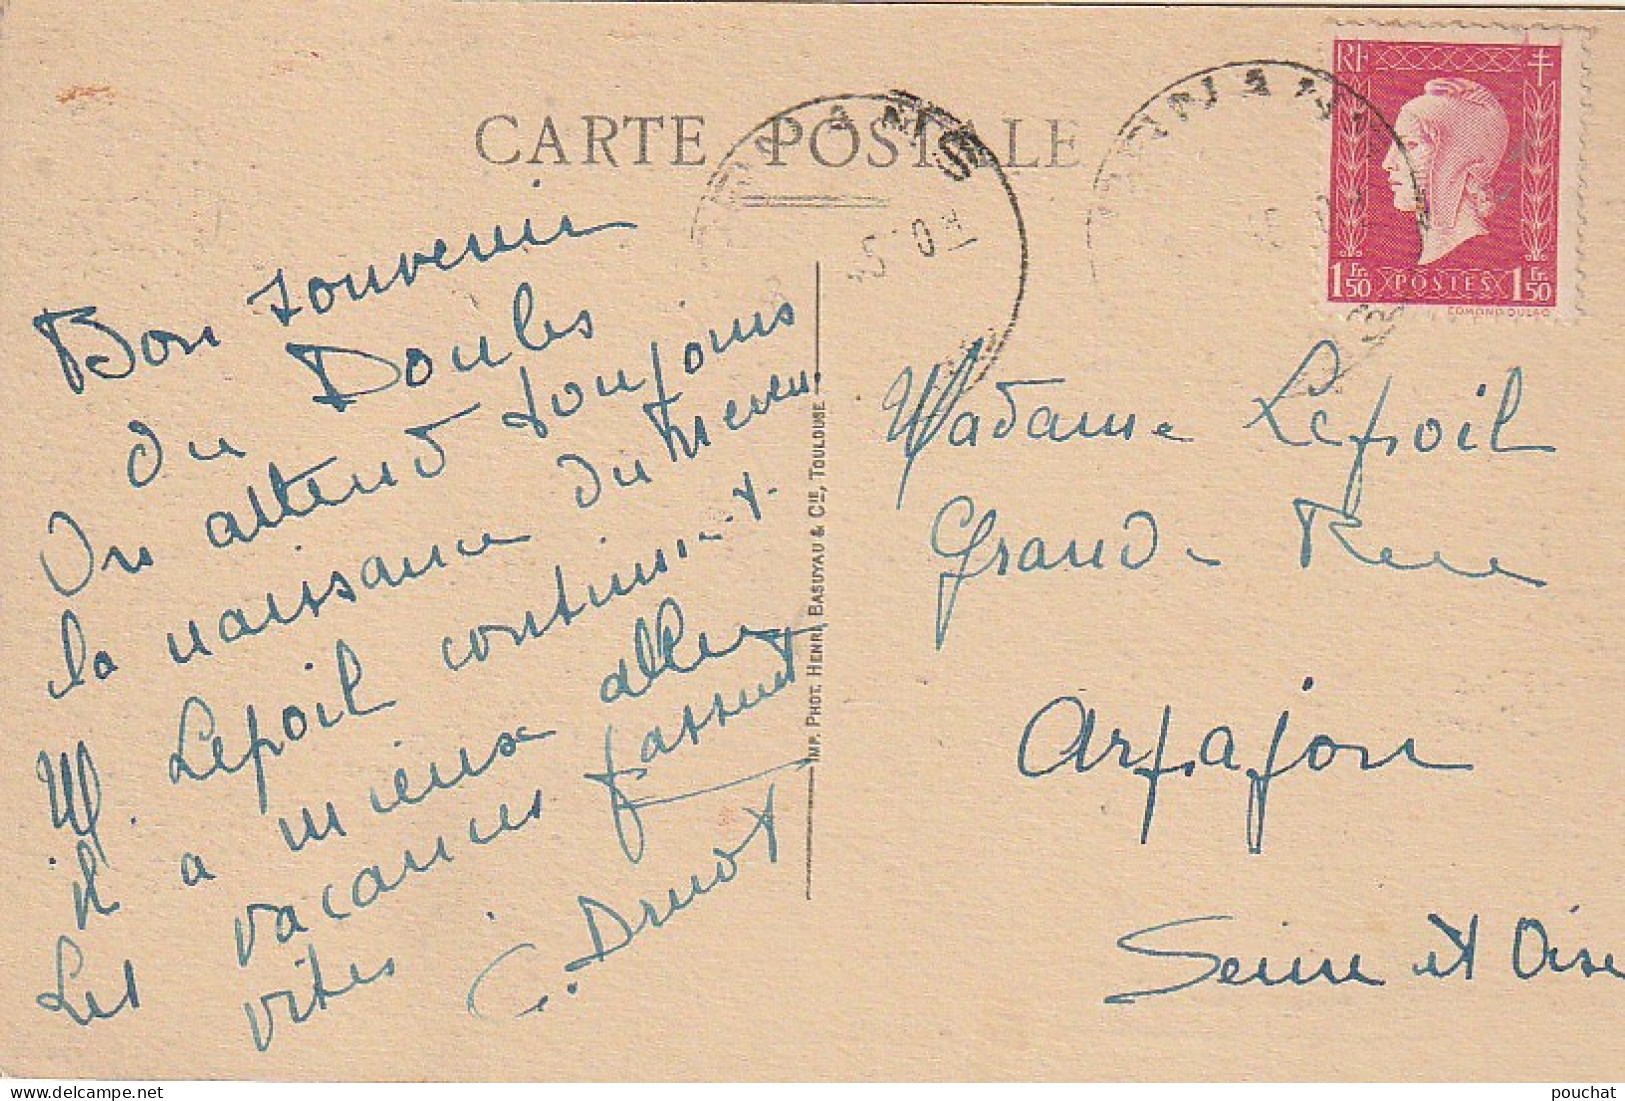 CARTE POSTALE
RF
1 Fr. 50
POSTES
1 Fr. 50
EDMOND DULAC
45
Bon souvenir
du Doubs
On attend toujours
la naissance du neveu
M. Lepoil continue-t-
il a mieux aller
Les vacances passent
vites.
C. Druot
IMP. PHOT. HENRI BASUYAU & CIE, TOULOUSE
Madame Lepoil
Grande Rue
Arpajon
Seine et Oise
pouchat